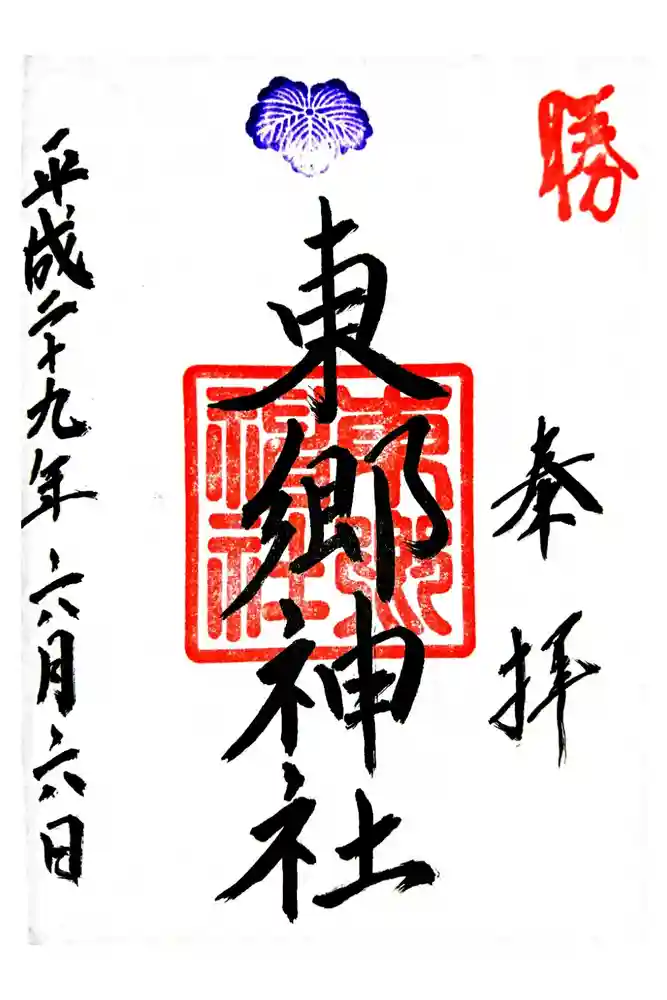 勝
奉拝
東郷神社
東郷神社
平成二十九年六月六日